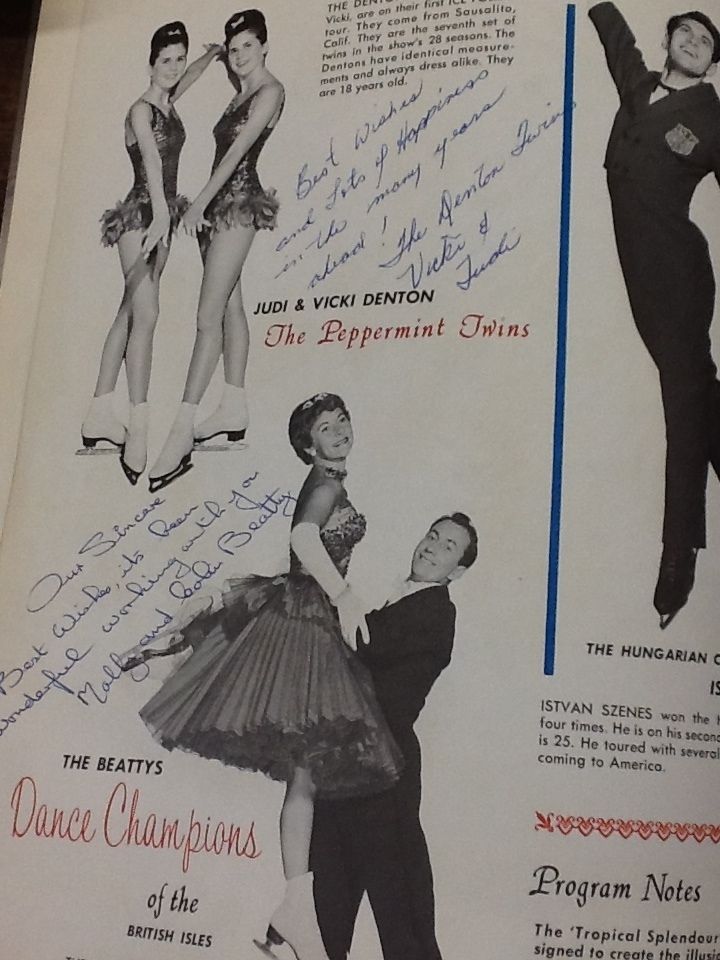 THE DENT
Vicki, are on their first ICE FO
tour. They come from Sausalito,
Calif. They are the seventh set of
twins in the show's 28 seasons. The
Dentons have identical measure-
ments and always dress alike. They
are 18 years old.
Best Wishes
and Lots of Happiness
in the many years
ahead! The Denton Twins
Vicki &
Judi
JUDI & VICKI DENTON
The Peppermint Twins
Our Sincere
Best Wishes, its been
wonderful working with you
Molly and Beatty
THE BEATTYS
Dance Champions
of the
BRITISH ISLES
THE HUNGARIAN C
IS
ISTVAN SZENES won the H
four times. He is on his second
is 25. He toured with several
coming to America.
Program Notes
The 'Tropical Splendour
signed to create the illusi